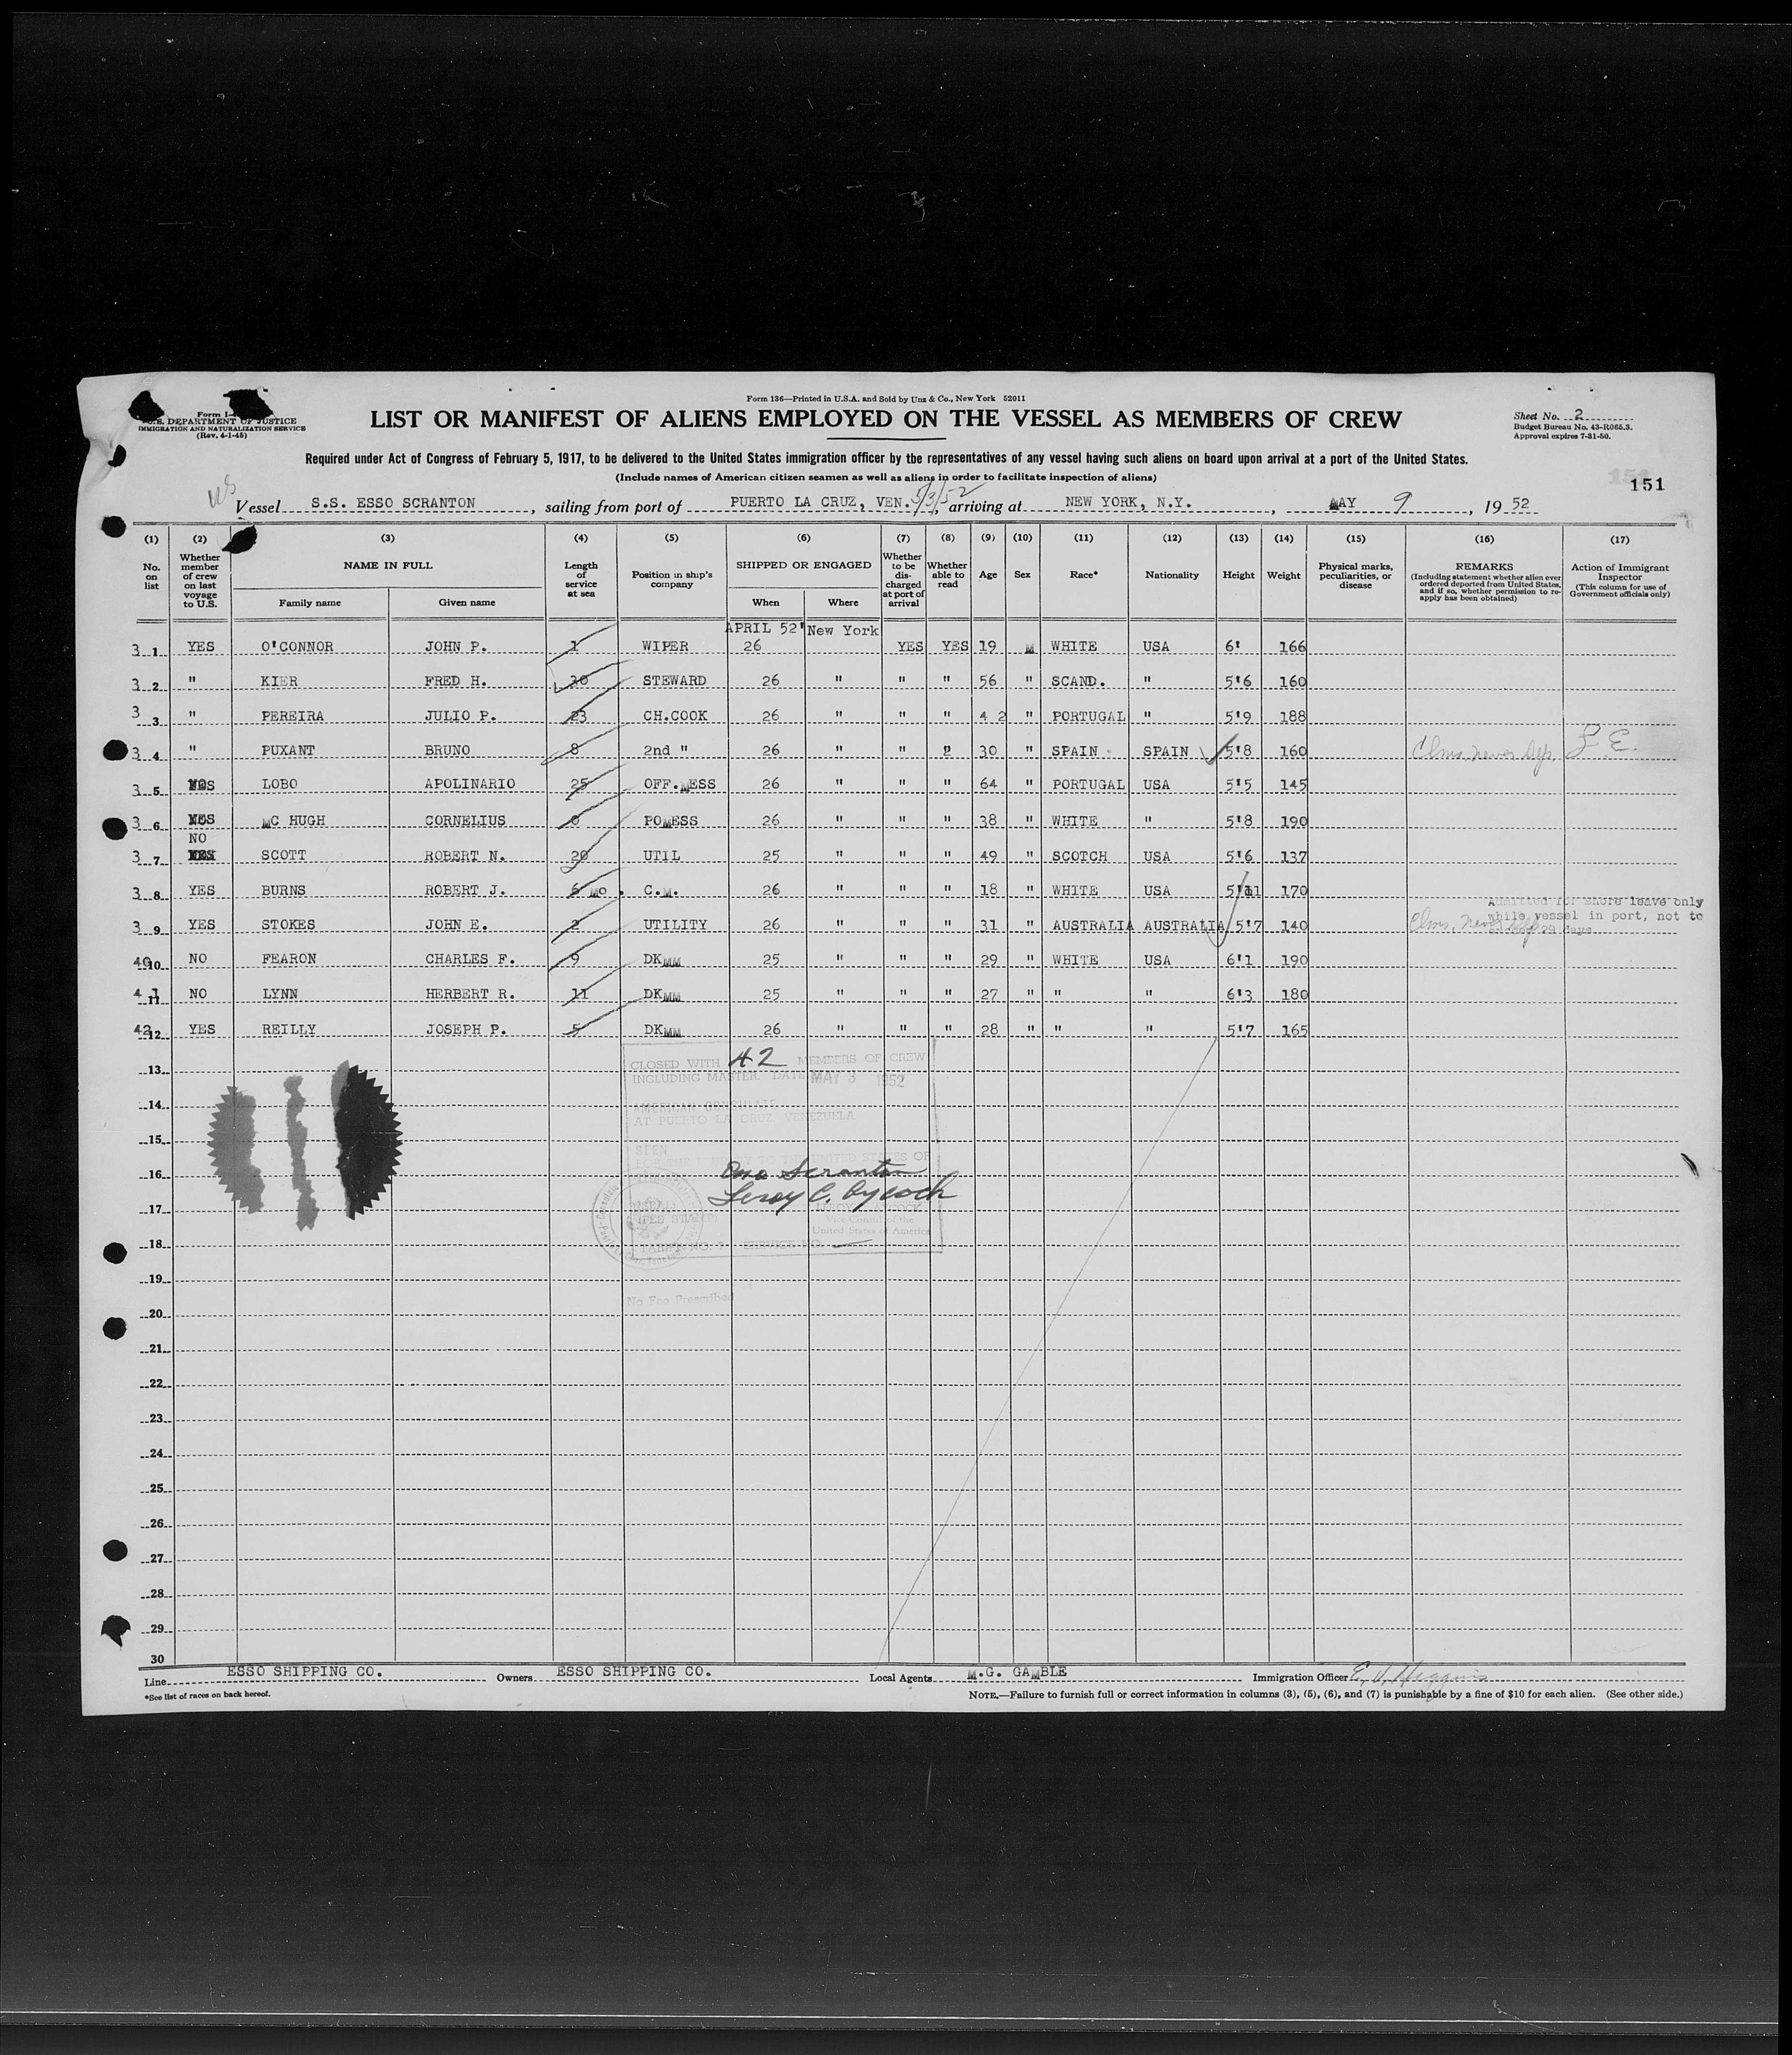 Form 136—Printed in U.S.A. and Sold by Unz & Co., New York 52011
Form I-
U.S. DEPARTMENT OF JUSTICE
IMMIGRATION AND NATURALIZATION SERVICE
(Rev. 4-1-45)
LIST OR MANIFEST OF ALIENS EMPLOYED ON THE VESSEL AS MEMBERS OF CREW
Sheet No. 2
Budget Bureau No. 43-R065.3.
Approval expires 7-31-50.
Required under Act of Congress of February 5, 1917, to be delivered to the United States immigration officer by the representatives of any vessel having such aliens on board upon arrival at a port of the United States.
(Include names of American citizen seamen as well as aliens in order to facilitate inspection of aliens)
151
151
US
Vessel S.S. ESSO SCRANTON, sailing from port of PUERTO LA CRUZ, VEN. 5/3/52, arriving at NEW YORK, N.Y., MAY 9, 1952
(1) (2) (3) (4) (5) (6) (7) (8) (9) (10) (11) (12) (13) (14) (15) (16) (17)
No. on list
Whether member of crew on last voyage to U.S.
NAME IN FULL
Family name
Given name
Length of service at sea
Position in ship's company
SHIPPED OR ENGAGED
When
Where
Whether to be discharged at port of arrival
Whether able to read
Age
Sex
Race*
Nationality
Height
Weight
Physical marks, peculiarities, or disease
REMARKS
(Including statement whether alien ever ordered deported from United States, and if so, whether permission to re-apply has been obtained)
Action of Immigrant Inspector
(This column for use of Government officials only)
APRIL 52' New York
3 1 YES O'CONNOR JOHN P. 1 WIPER 26 YES YES 19 M WHITE USA 6' 166
3 2 " KIER FRED H. 30 STEWARD 26 " " " 56 " SCAND. " 5'6 160
3 3 " PEREIRA JULIO P. 23 CH.COOK 26 " " " 4 2 " PORTUGAL " 5'9 188
3 4 " PUXANT BRUNO 8 2nd " 26 " " " 30 " SPAIN SPAIN 5'8 160 Clms. never dep. L E.
3 5 YES LOBO APOLINARIO 25 OFF.MESS 26 " " " 64 " PORTUGAL USA 5'5 145
3 6 YES MC HUGH CORNELIUS 6 POMESS 26 " " " 38 " WHITE " 5'8 190
NO
3 7 YES SCOTT ROBERT N. 20 UTIL 25 " " " 49 " SCOTCH USA 5'6 137
3 8 YES BURNS ROBERT J. 6 MO. C.M. 26 " " " 18 " WHITE USA 5'11 170
Admitted for shore leave only
while vessel in port, not to
29 days
3 9 YES STOKES JOHN E. 2 UTILITY 26 " " " 31 " AUSTRALIA AUSTRALIA 5'7 140 Clms. never dep
40 10 NO FEARON CHARLES F. 9 DKMM 25 " " " 29 " WHITE USA 6'1 190
41 11 NO LYNN HERBERT R. 11 DKMM 25 " " " 27 " " " 6'3 180
42 12 YES REILLY JOSEPH P. 5 DKMM 26 " " " 28 " " " 5'7 165
CLOSED WITH 42 MEMBERS OF CREW
INCLUDING MASTER. DATE MAY 3 1952
AMERICAN CONSULATE
AT PUERTO LA CRUZ VENEZUELA
SEEN
FOR THE JOURNEY TO THE UNITED STATES OF
Esso Scranton
Leroy C. Aycock
(SEAL)
(FEE STAMP)
Vice-Consul of the
United States of America
TARIFF NO. 7 SERVICE NO. —
No Fee Prescribed
13
14
15
16
17
18
19
20
21
22
23
24
25
26
27
28
29
30
Line ESSO SHIPPING CO. Owners ESSO SHIPPING CO. Local Agents M.G. GAMBLE Immigration Officer
*See list of races on back hereof.
NOTE.—Failure to furnish full or correct information in columns (3), (5), (6), and (7) is punishable by a fine of $10 for each alien. (See other side.)